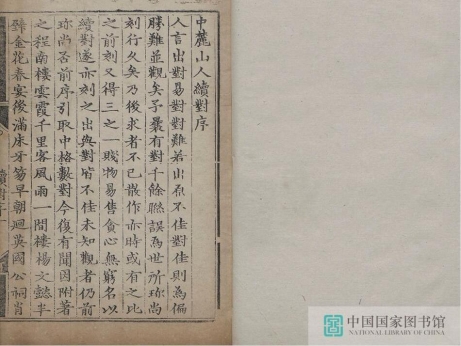 中麓山人續對序
人言出對易對對難若出亦不佳對佳則為偏
勝難並觀矣予曩有對千餘聯誤為世所珍尚
刻行久矣乃後求者不已散作亦時或有之比
之前刻又得三之一賤物易售貪心無窮名以
續對遂亦刻之出與對皆不佳未知觀者仍前
珍尚否前序引取中格數對今復有聞因附著
之程南樓雲霞千里客風雨一間樓楊文懿半
臂金花春宴後滿床牙笏早朝迴英國公祠肖
續對序
中国国家图书馆
NATIONAL LIBRARY OF CHINA